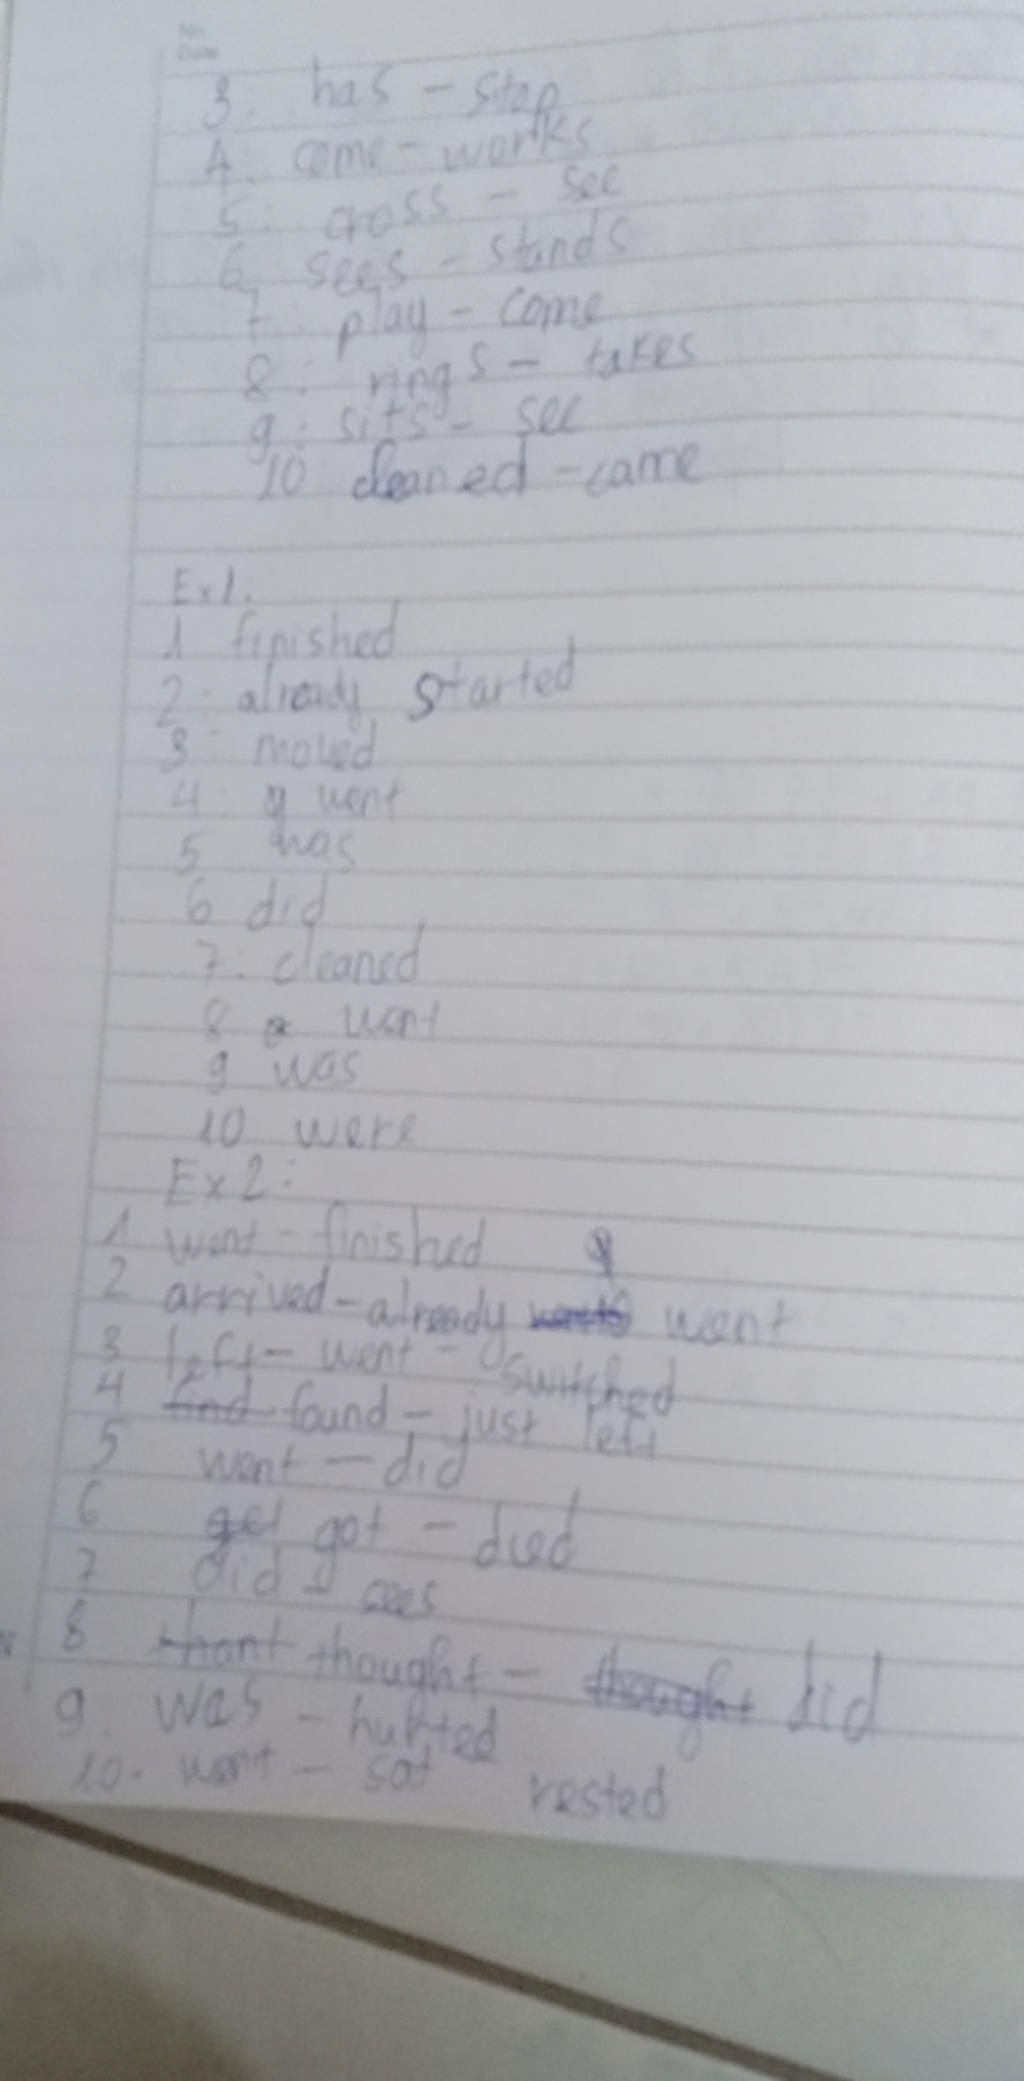 No.
Date
3. has - stop
4. come - works
5. cross - see
6. sees - stands
7. play - come
8: rings - takes
9: sits - see
10: cleaned - came
Ex1:
1 finished
2. already started
3: moved
4: went
5 has
6 did
7: cleaned
8 went
9 was
10 were
Ex2:
1 went - finished
2 arrived - already went
3 left - went - switched
4 find found - just left
5 went - did
6 get got - died
7 did - sees
8 thant thought - thought did
9. was - hurted
10. went - sat rested